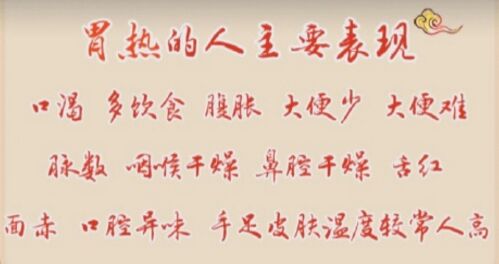 胃热的人主要表现
口渴 多饮食 腹胀 大便少 大便难
脉数 咽喉干燥 鼻腔干燥 舌红
面赤 口腔异味 手足皮肤温度较常人高